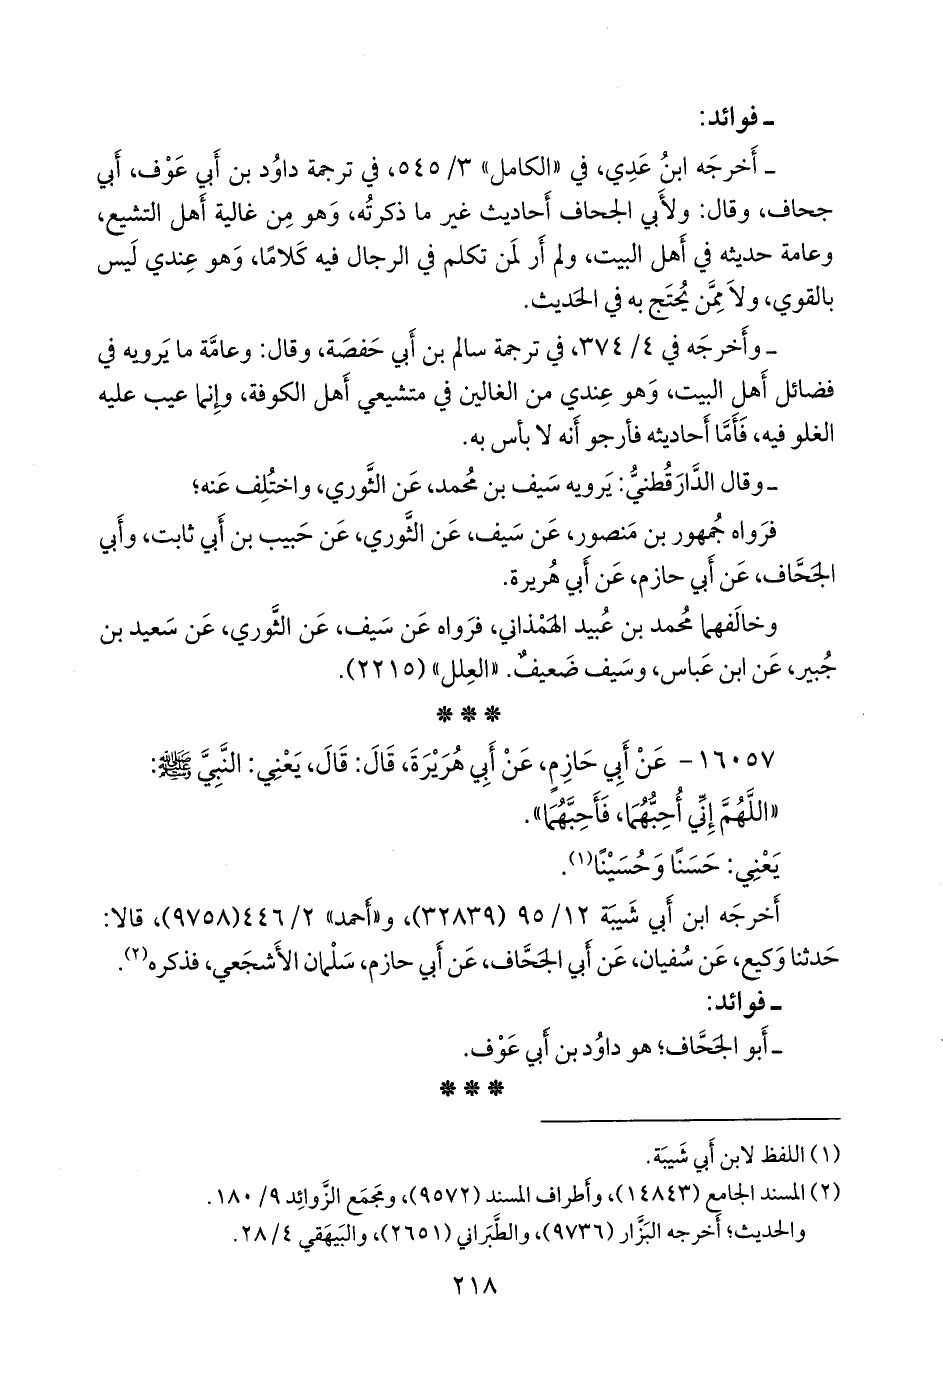 ـ فوائد:
ـ أَخرجَه ابنُ عَدِي، في «الكامل» ٣/ ٥٤٥، في ترجمة داوُد بن أَبي عَوْف، أَبي
جحاف، وقال: ولأَبي الجحاف أَحاديث غير ما ذكرتُه، وَهو مِن غالية أَهل التشيع،
وعامة حديثه في أَهل البيت، ولم أَر لمَن تكلم في الرجال فيه كَلامًا، وَهو عِندي لَيس
بالقوي، ولاَ مِمَّن يُحتَج به في الحَديث.
ـ وأَخرجَه في ٤/ ٣٧٤، في ترجمة سالم بن أَبي حَفصَة، وقال: وعامَّة ما يَرويه في
فضائل أَهل البيت، وَهو عِندي من الغالين في متشيعي أَهل الكوفة، وإِنما عيب عليه
الغلو فيه، فَأَمَّا أَحاديثه فأَرجو أَنه لا بأس به.
ـ وقال الدَّارَقُطنيُّ: يَرويه سَيف بن مُحمد، عَن الثَّوري، واختُلِف عَنه؛
فرَواه جُمهور بن مَنصور، عَن سَيف، عَن الثَّوري، عَن حَبيب بن أَبي ثابت، وأَبي
الجَحَّاف، عَن أَبي حازم، عَن أَبي هُريرة.
وخالَفهما مُحمد بن عُبيد الهَمْذاني، فرَواه عَن سَيف، عَن الثَّوري، عَن سَعيد بن
جُبير، عَن ابن عَباس، وسَيف ضَعيفٌ. «العِلل» (٢٢١٥).
* * *
١٦٠٥٧ - عَنْ أَبِي حَازِمٍ، عَنْ أَبِي هُرَيْرَةَ، قَالَ: قَالَ، يَعْنِي: النَّبِيَّ ﷺ:
«اللَّهُمَّ إِنِّي أُحِبُّهُمَا، فَأَحِبَّهُمَا».
يَعْنِي: حَسَنًا وَحُسَيْنًا(١).
أَخرجَه ابن أَبي شَيبَة ١٢/ ٩٥ (٣٢٨٣٩)، و«أَحمد» ٢/ ٤٤٦(٩٧٥٨)، قالا:
حَدثنا وَكيع، عَن سُفيان، عَن أَبي الجَحَّاف، عَن أَبي حازم، سَلْمان الأَشجَعي، فذكره(٢).
ـ فوائد:
ـ أَبو الجَحَّاف؛ هو داوُد بن أَبي عَوْف.
* * *
(١) اللفظ لابن أَبي شَيبَة.
(٢) المسند الجامع (١٤٨٤٣)، وأطراف المسند (٩٥٧٢)، ومَجمَع الزَّوائِد ٩/ ١٨٠.
والحديث؛ أَخرجه البَزَّار (٩٧٣٦)، والطَّبَراني (٢٦٥١)، والبَيهَقي ٤/ ٢٨.
٢١٨